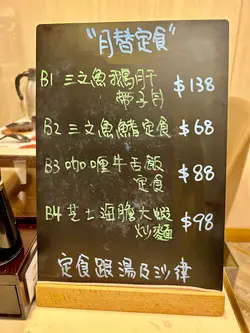 "月替定食"
B1 三文魚鵝肝 $138
帶子丼
B2 三文魚鰭定食 $68
B3 咖喱牛舌飯 $88
定食
B4 芝士海膽大蝦 $98
炒麵
定食跟湯及沙律